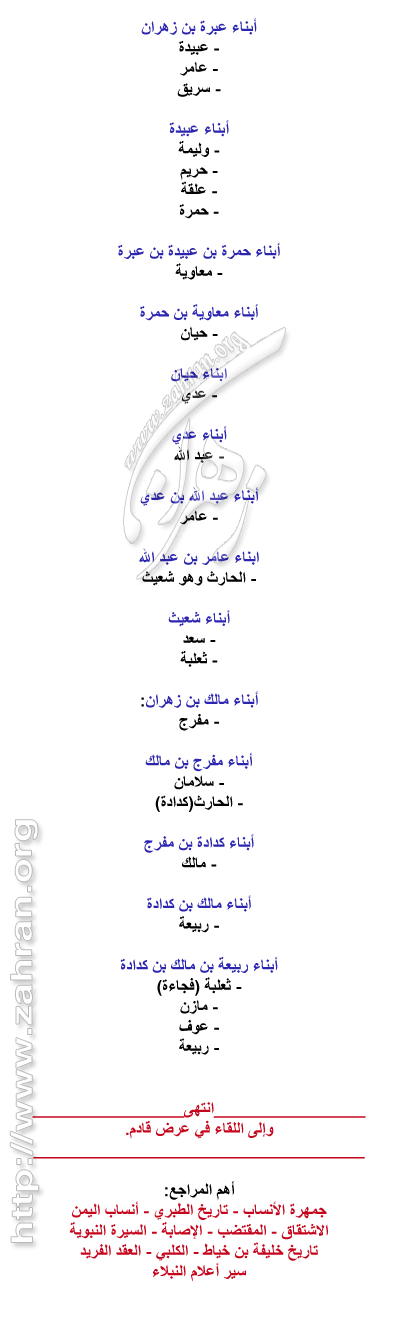 أبناء عبرة بن زهران
- عبيدة
- عامر
- سريق
أبناء عبيدة
- وليمة
- حريم
- علقة
- حمرة
أبناء حمرة بن عبيدة بن عبرة
- معاوية
أبناء معاوية بن حمرة
- حيان
ابناء حيان
- عدي
أبناء عدي
- عبد الله
أبناء عبد الله بن عدي
- عامر
ابناء عامر بن عبد الله
- الحارث وهو شعيث
أبناء شعيث
- سعد
- ثعلبة
أبناء مالك بن زهران:
- مفرج
أبناء مفرج بن مالك
- سلامان
- الحارث(كدادة)
أبناء كدادة بن مفرج
- مالك
أبناء مالك بن كدادة
- ربيعة
أبناء ربيعة بن مالك بن كدادة
- ثعلبة (فجاءة)
- مازن
- عوف
- ربيعة
انتهى
وإلى اللقاء في عرض قادم.
أهم المراجع:
جمهرة الأنساب - تاريخ الطبري - أنساب اليمن
الاشتقاق - المقتضب - الإصابة - السيرة النبوية
تاريخ خليفة بن خياط - الكلبي - العقد الفريد
سير أعلام النبلاء
زهران
www.zahran.org
http://www.zahran.org